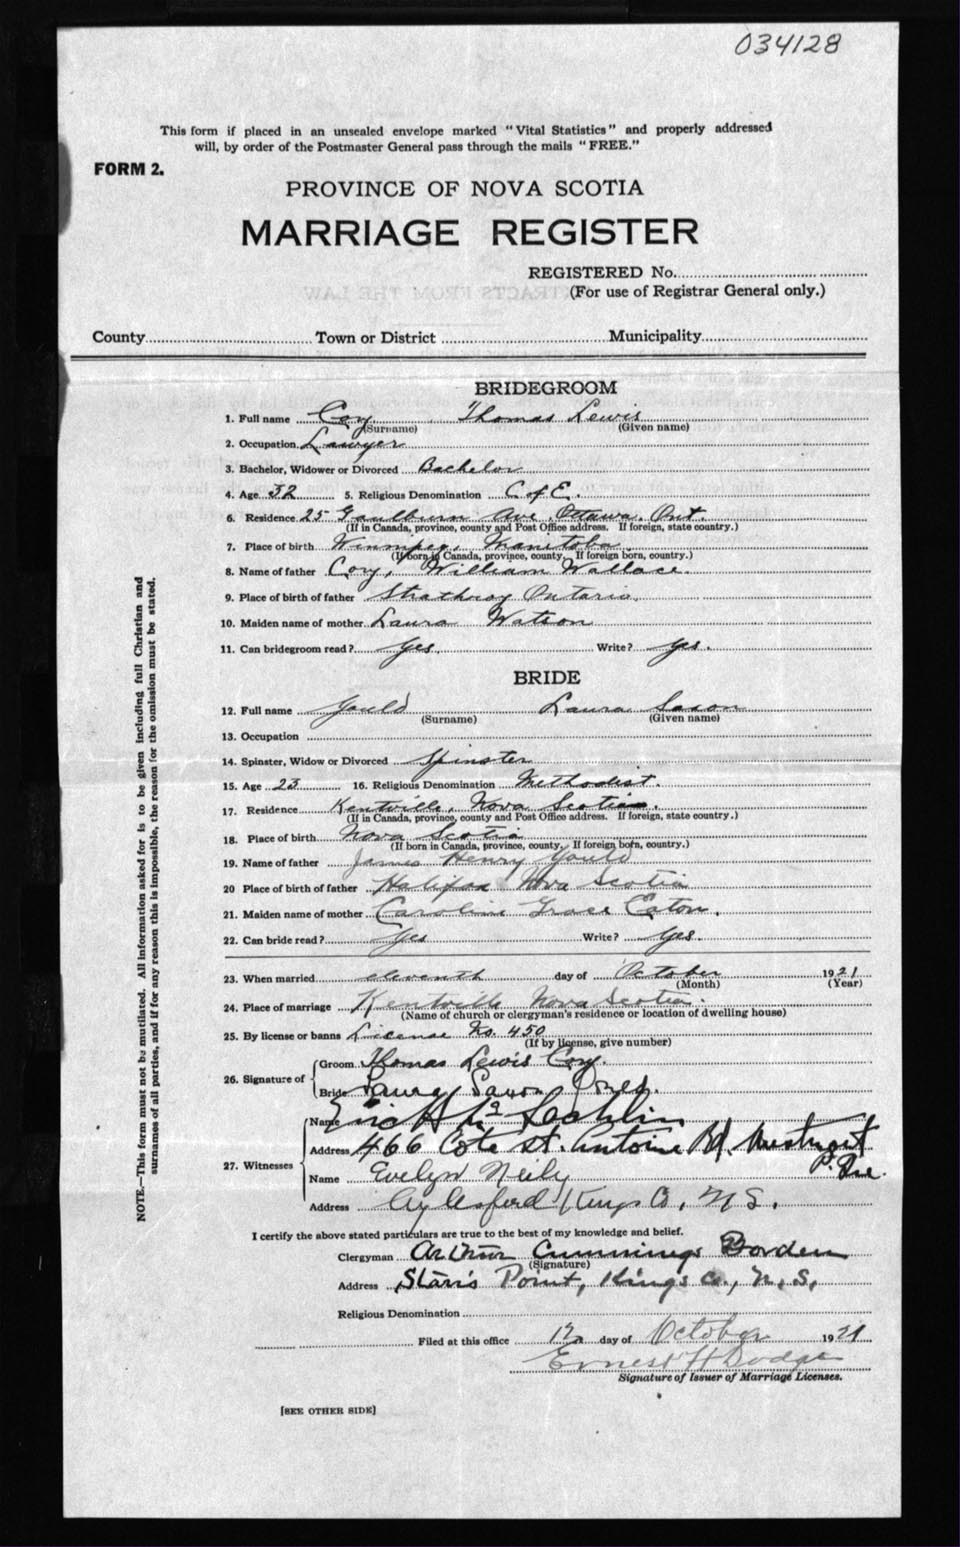 034128
This form if placed in an unsealed envelope marked "Vital Statistics" and properly addressed
will, by order of the Postmaster General pass through the mails "FREE."
FORM 2.
PROVINCE OF NOVA SCOTIA
MARRIAGE REGISTER
REGISTERED No.
(For use of Registrar General only.)
County Town or District Municipality
BRIDEGROOM
1. Full name Cory Thomas Lewis
(Surname) (Given name)
2. Occupation Lawyer
3. Bachelor, Widower or Divorced Bachelor
4. Age 32 5. Religious Denomination C of E.
6. Residence 25 Goulburn Ave. Ottawa. Ont.
(If in Canada, province, county and Post Office address. If foreign, state country.)
7. Place of birth Winnipeg, Manitoba
(If born in Canada, province, county, If foreign born, country.)
8. Name of father Cory, William Wallace.
9. Place of birth of father Strathroy Ontario.
10. Maiden name of mother Laura Watson
11. Can bridegroom read? Yes. Write? Yes.
BRIDE
12. Full name Yould Laura Saxon
(Surname) (Given name)
13. Occupation
14. Spinster, Widow or Divorced Spinster
15. Age 23 16. Religious Denomination Methodist.
17. Residence Kentville, Nova Scotia.
(If in Canada, province, county and Post Office address. If foreign, state country.)
18. Place of birth Nova Scotia
(If born in Canada, province, county, If foreign born, country.)
19. Name of father James Henry Yould
20 Place of birth of father Halifax Nova Scotia
21. Maiden name of mother Caroline Grace Eaton.
22. Can bride read? Yes Write? Yes.
23. When married eleventh day of October 1921
(Month) (Year)
24. Place of marriage Kentville Nova Scotia.
(Name of church or clergyman's residence or location of dwelling house)
25. By license or banns License No. 450
(If by license, give number)
26. Signature of
Groom Thomas Lewis Cory.
Bride Laura Saxon Yould.
27. Witnesses
Name Eric H Mc
Address 466 Cote St. Antoine Rd. Westmount
P. Que.
Name Evelyn Neily
Address Aylesford Kings Co, N S.
I certify the above stated particulars are true to the best of my knowledge and belief.
Clergyman Arthur Cummings Borden
(Signature)
Address Starr's Point, Kings Co., N. S.
Religious Denomination
Filed at this office 12 day of October 1921
Ernest H Dodge
Signature of Issuer of Marriage Licenses.
[SEE OTHER SIDE]
NOTE.—This form must not be mutilated. All information asked for is to be given including full Christian and
surnames of all parties, and if for any reason this is impossible, the reason for the omission must be stated.